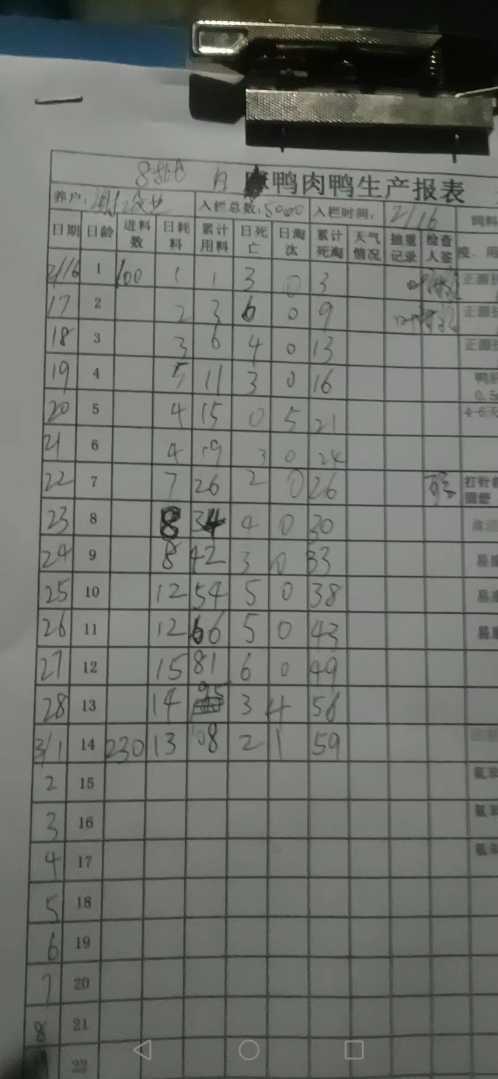 鸭肉鸭生产报表
养户: 入栏总数:5000 入栏时间: 2/16 饲料
日期 日龄 进料数 日耗料 累计用料 日死亡 日淘汰 累计死淘 天气情况 抽重记录 检查人签
2/16 1 100 1 1 3 0 3 正面
17 2 2 3 6 0 9 正面
18 3 3 6 4 0 13 正面
19 4 5 11 3 0 16
20 5 4 15 0 5 21 4-6天
21 6 4 19 3 0 24
22 7 7 26 2 0 26 打针
23 8 8 34 4 0 30
24 9 8 42 3 0 33
25 10 12 54 5 0 38
26 11 12 66 5 0 43
27 12 15 81 6 0 49
28 13 14 95 3 4 56
3/1 14 230 13 108 2 1 59
2 15
3 16
4 17
5 18
6 19
7 20
8 21
22